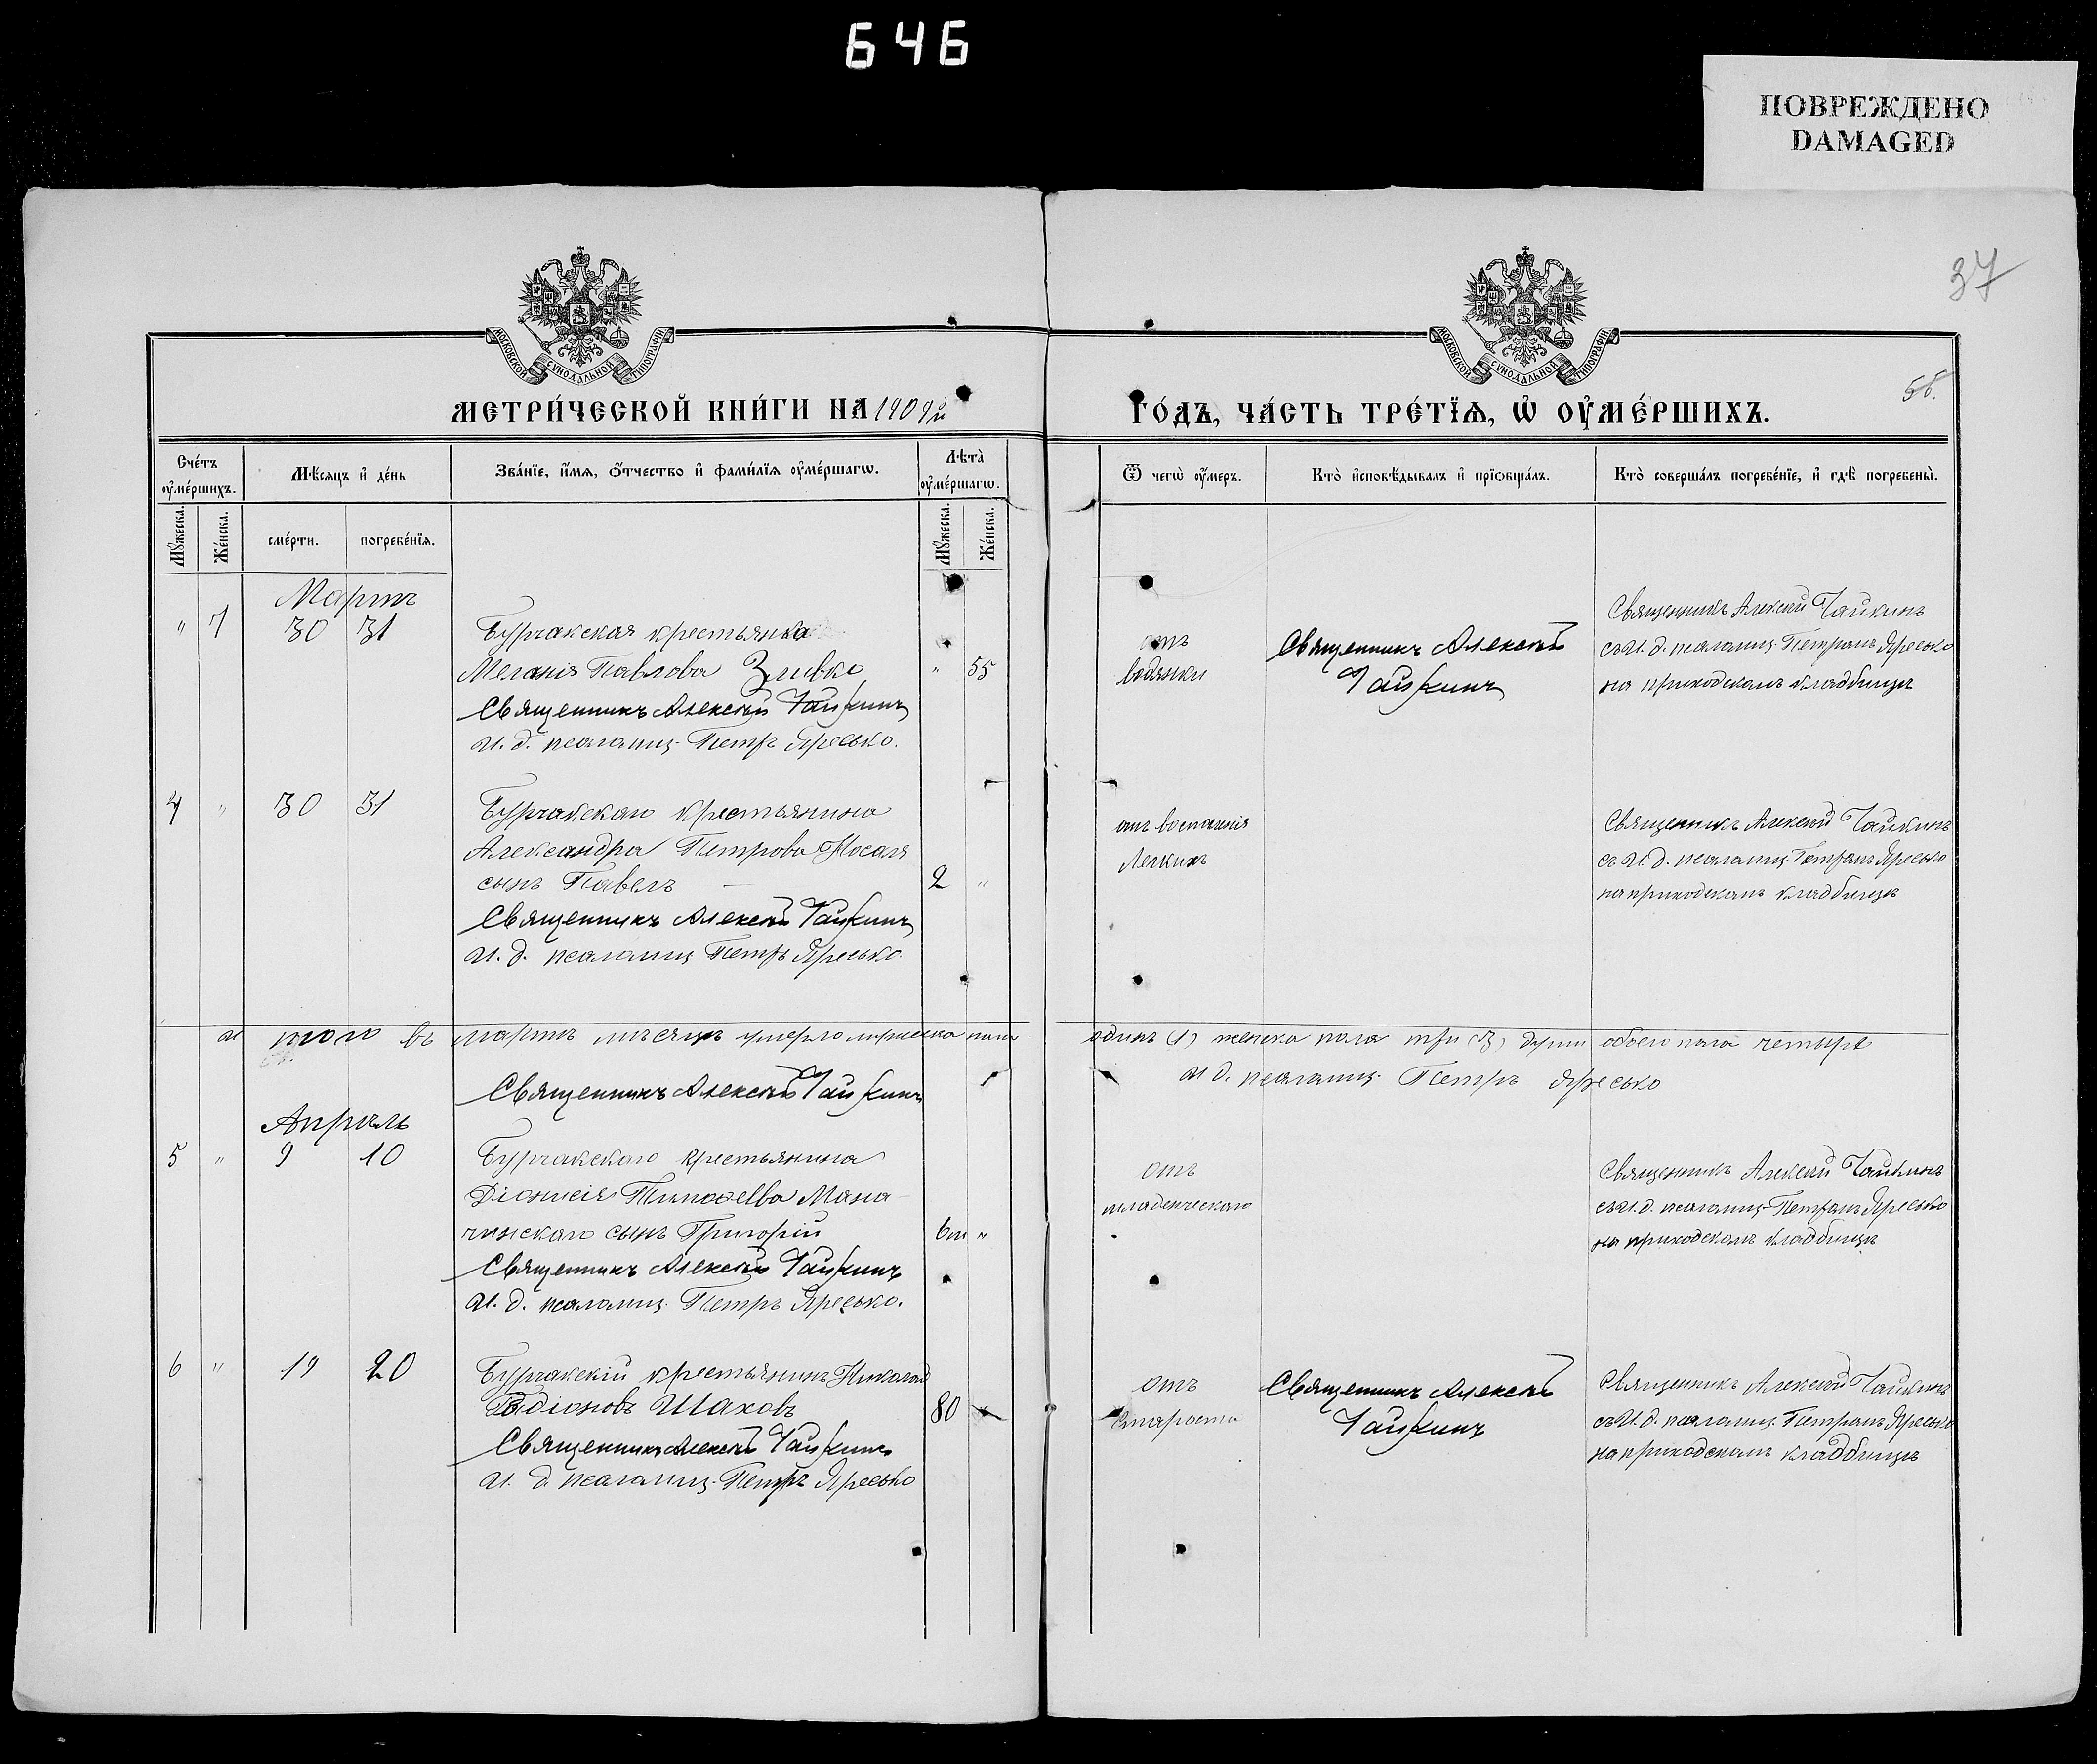 646
ПОВРЕЖДЕНО
DAMAGED
37
МОСКОВСКОЙ СУНОДАЛЬНОЙ ТИПОГРАФІИ
МОСКОВСКОЙ СУНОДАЛЬНОЙ ТИПОГРАФІИ
МЕТРИ́ЧЕСКОЙ КНИ́ГИ НА 1909й
ГО́ДЪ, ЧА́СТЬ ТРЕ́ТЇѦ, Ѡ҆ ОУ҆МЕ́РШИХЪ.
Сче́тъ оу҆ме́ршихъ.
Мѣ́сяцъ и҆ де́нь
Зва́нїе, и҆́мѧ, ѻ҆́тчество и҆ фами́лїѧ оу҆ме́ршагѡ.
Лѣта̀ оу҆ме́ршагѡ.
Ѿ чегѡ̀ оу҆́меръ.
Кто̀ и҆сповѣ́дывалъ и҆ прїѻбща́лъ.
Кто̀ соверша́лъ погребе́нїе, и҆ гдѣ̀ погребены̀.
Мꙋ́жеска. Же́нска.
сме́рти. погребе́нїѧ.
Мꙋ́жеска. Же́нска.
Мартъ
" 7 30 31 Бурчакская крестьянка
Меланія Павлова Зливко " 55
Священникъ Алексѣй Чайкинъ
И. д. псаломщ. Петръ Яресько.
отъ
водянки
Священникъ Алексѣй
Чайкинъ
Священникъ Алексѣй Чайкинъ
съ И. д. псаломщ. Петромъ Яресько
на приходскомъ кладбищѣ
4 " 30 31 Бурчакскаго крестьянина
Александра Петрова Носаля
сынъ Павелъ 2 "
Священникъ Алексѣй Чайкинъ
И. д. псаломщ Петръ Яресько.
отъ воспаленія
Легкихъ
Священникъ Алексѣй Чайкинъ
съ И. д. псаломщ Петромъ Яресько
на приходскомъ кладбищѣ
И того въ мартѣ мѣсяцѣ умерло мужеска пола одинъ (1) женска пола три (3) души обоего пола четыре
Священникъ Алексѣй Чайкинъ
И д. псаломщ. Петръ Яресько
Апрѣль
5 " 9 10 Бурчакскаго крестьянина
Діонисія Тимофеева Мана-
чинскаго сынъ Григорій 6м "
Священникъ Алексѣй Чайкинъ
И. д. псаломщ. Петръ Яресько.
отъ
младенческаго
Священникъ Алексѣй Чайкинъ
съ И. д. псаломщ. Петромъ Яресько
на приходскомъ кладбищѣ
6 " 19 20 Бурчакскій крестьянинъ Николай
Родіоновъ Шаховъ 80 "
Священникъ Алексѣй Чайкинъ
И. д. псаломщ. Петръ Яресько
отъ
старости
Священникъ Алексѣй
Чайкинъ
Священникъ Алексѣй Чайкинъ
съ И. д. псаломщ. Петромъ Яресько
на приходскомъ кладбищѣ